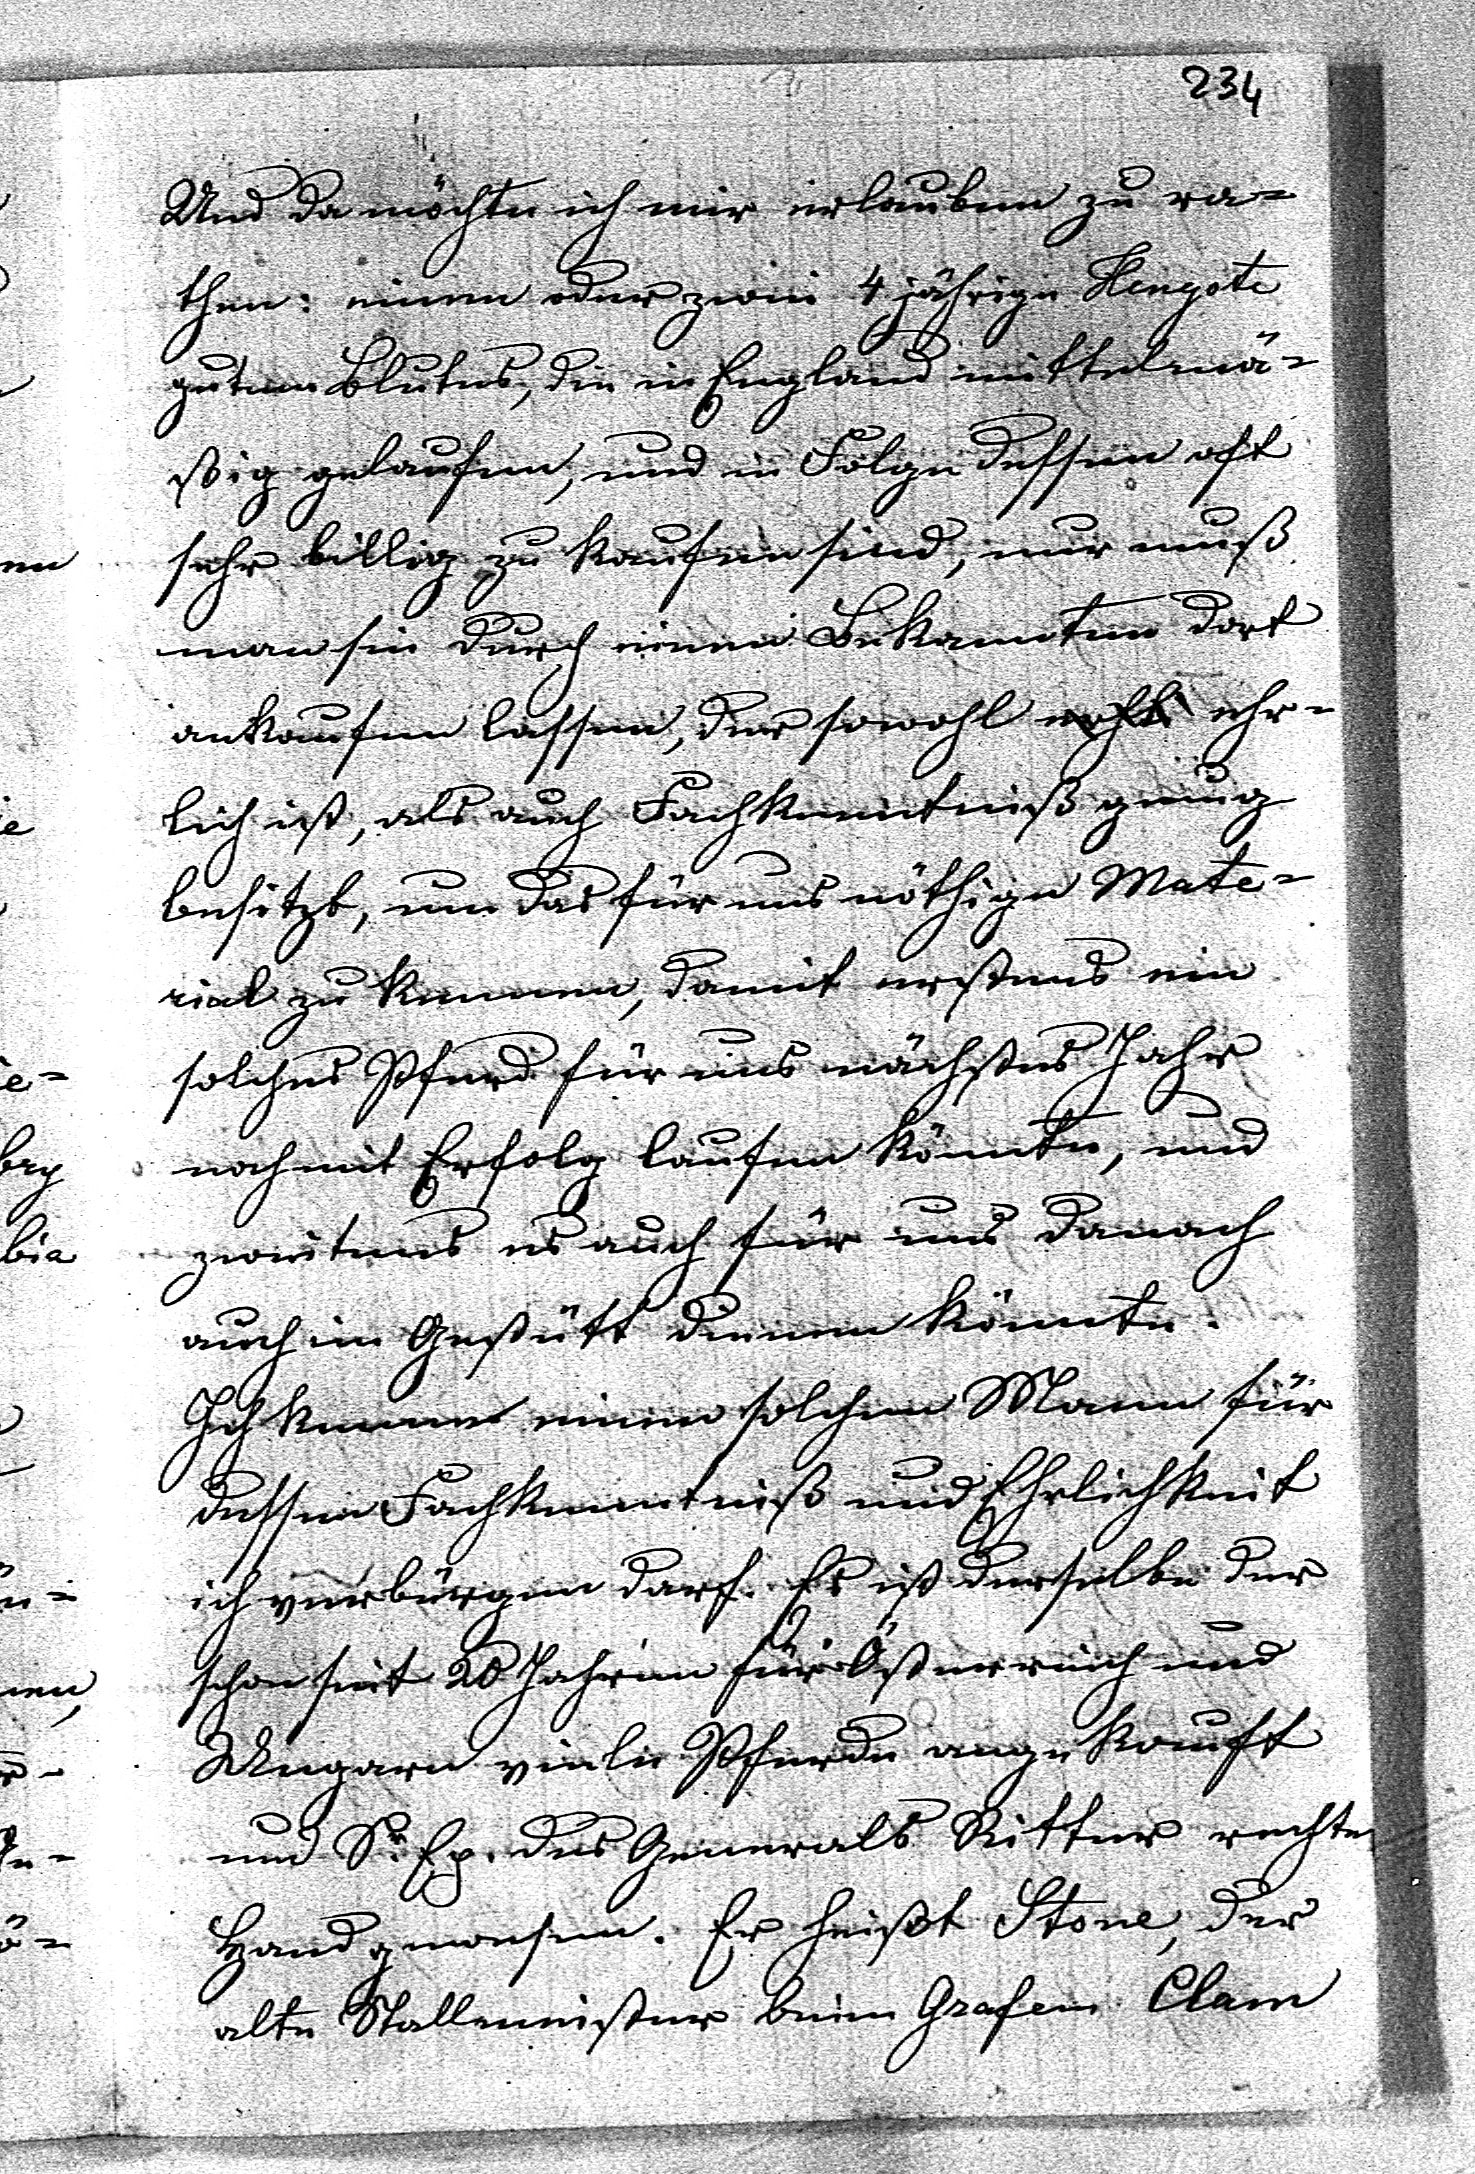 234
Und da möchte ich mir erlauben zu ra-
then: einen oder zwei 4 jährige Hengste
guten Blutes, die in England mittelmä-
ßig gelaufen, und in Folge dessen oft
sehr billig zu kaufen sind, nur muß
man sie durch einen Bekannten dort
ankaufen lassen, der sowohl ehr-
lich ist, als auch Fachkenntniß genug
besitzt, um das für uns nöthige Mate-
rial zu kennen, damit erstens ein
solches Pferd für uns nächstes Jahr
noch mit Erfolg laufen könnte, und
zweitens es auch für uns danach
auch im Gestütt dienen könnte.
Ich kenne einen solchen Mann für
dessen Fachkenntniß und Ehrlichkeit
ich verbürgen darf. Es ist derselbe der
schon seit 20 Jahren für Östnerreich und
Ungarn viele Pferde angekauft
und Sr. Ex. des Generals Ritter rechte
Hand gewesen. Er heißt Stone, der
alte Stallmeister beim Grafen Clam